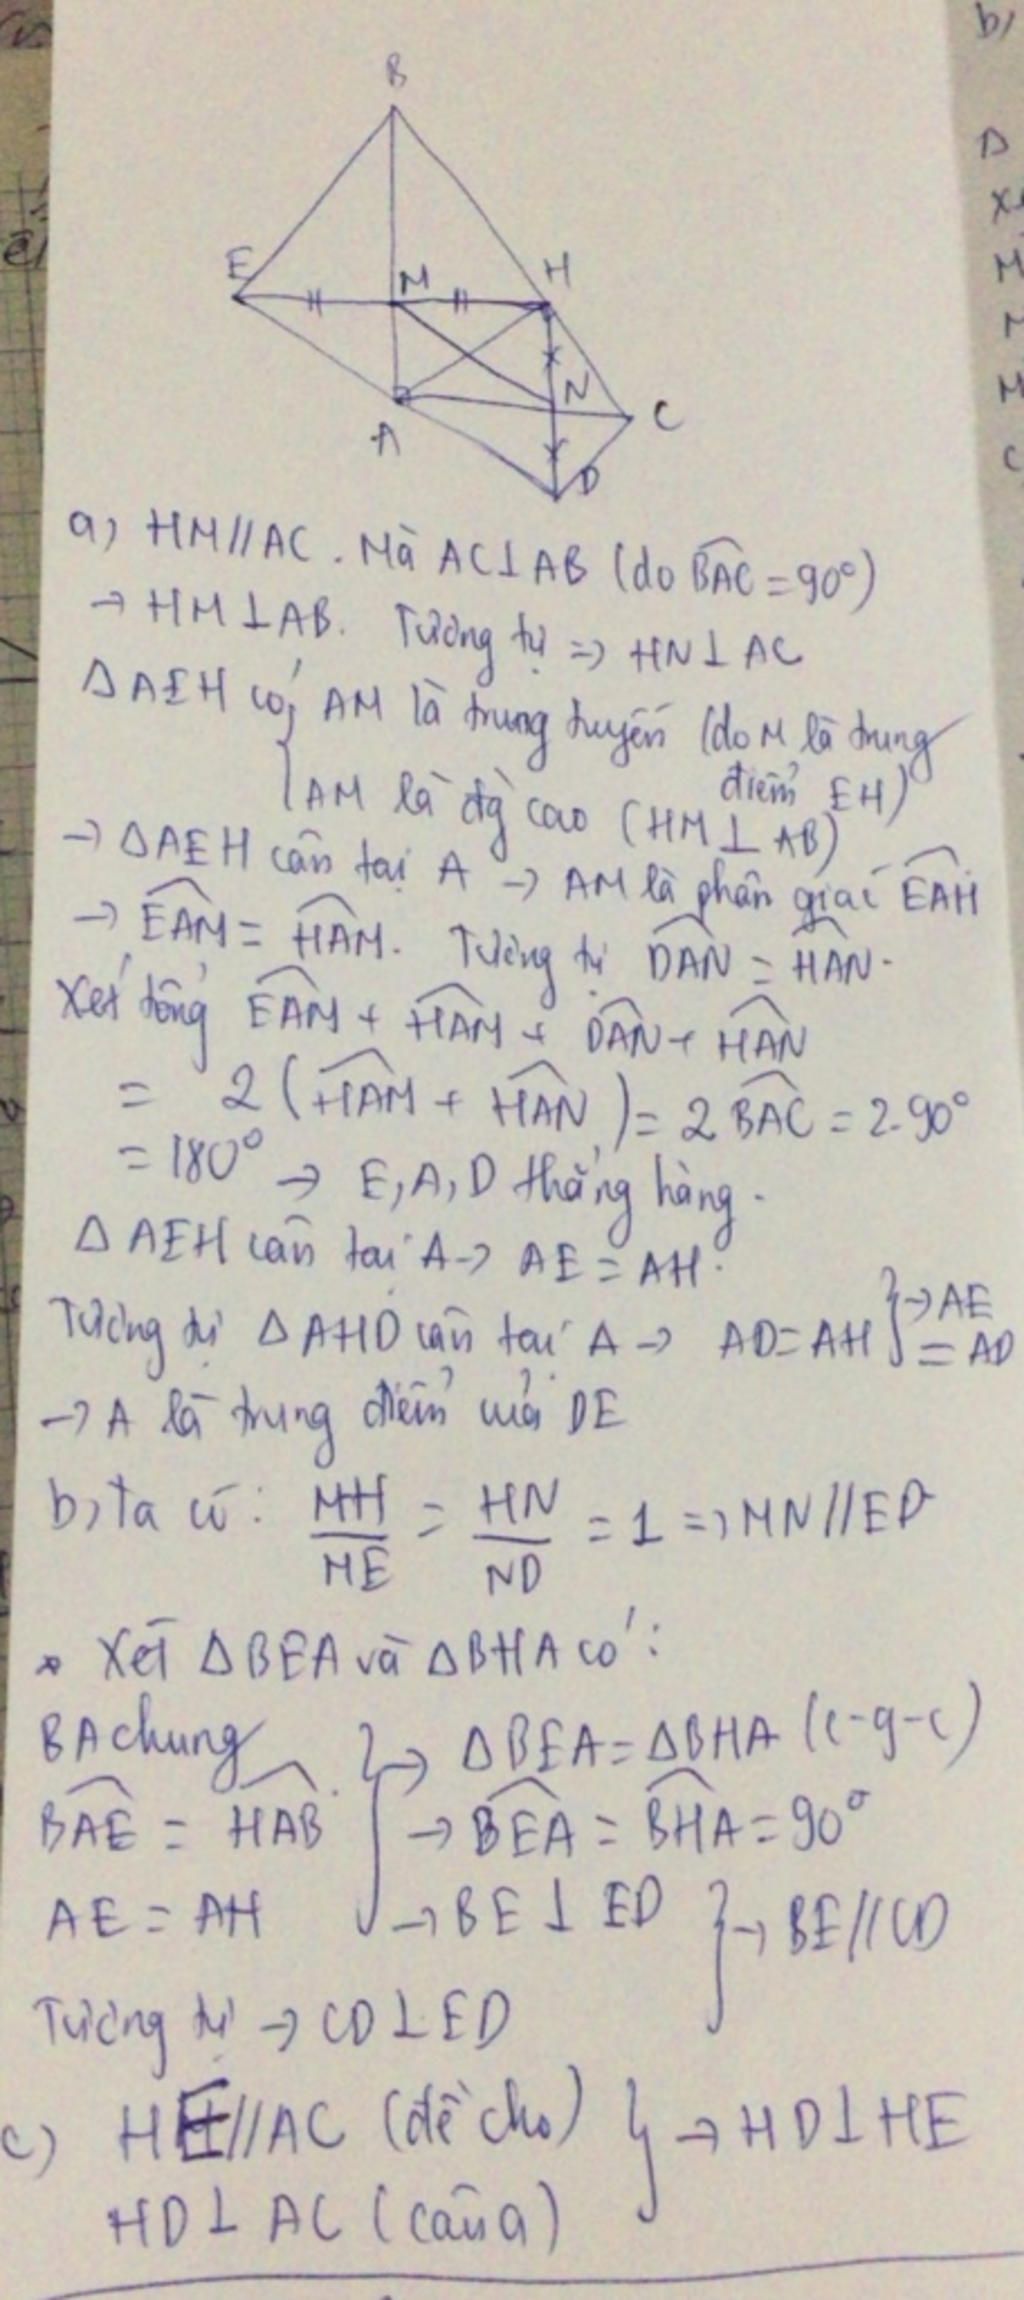 b)
B
E
M
H
N
C
A
D
a) HM//AC. Mà AC⊥AB (do BAC = 90°)
→ HM⊥AB. Tương tự => HN⊥AC
ΔAEH có { AM là trung tuyến (do M là trung điểm EH)
AM là đg cao (HM⊥AB)
→ ΔAEH cân tại A → AM là phân giác EAH
→ EAM = HAM. Tương tự DAN = HAN.
Xét tổng EAM + HAM + DAN + HAN
= 2 (HAM + HAN) = 2 BAC = 2.90°
= 180° → E, A, D thẳng hàng.
ΔAEH cân tại A → AE = AH.
Tương tự ΔAHD cân tại A → AD = AH } → AE = AD
→ A là trung điểm của DE
b, ta có: MH/ME = HN/ND = 1 => MN//ED
* Xét ΔBEA và ΔBHA có:
BA chung } → ΔBEA = ΔBHA (c-g-c)
BAE = HAB → BEA = BHA = 90°
AE = AH → BE ⊥ ED } → BE//CD
Tương tự → CD⊥ED
c) HE//AC (đề cho) } → HD⊥HE
HD⊥AC (câu a)